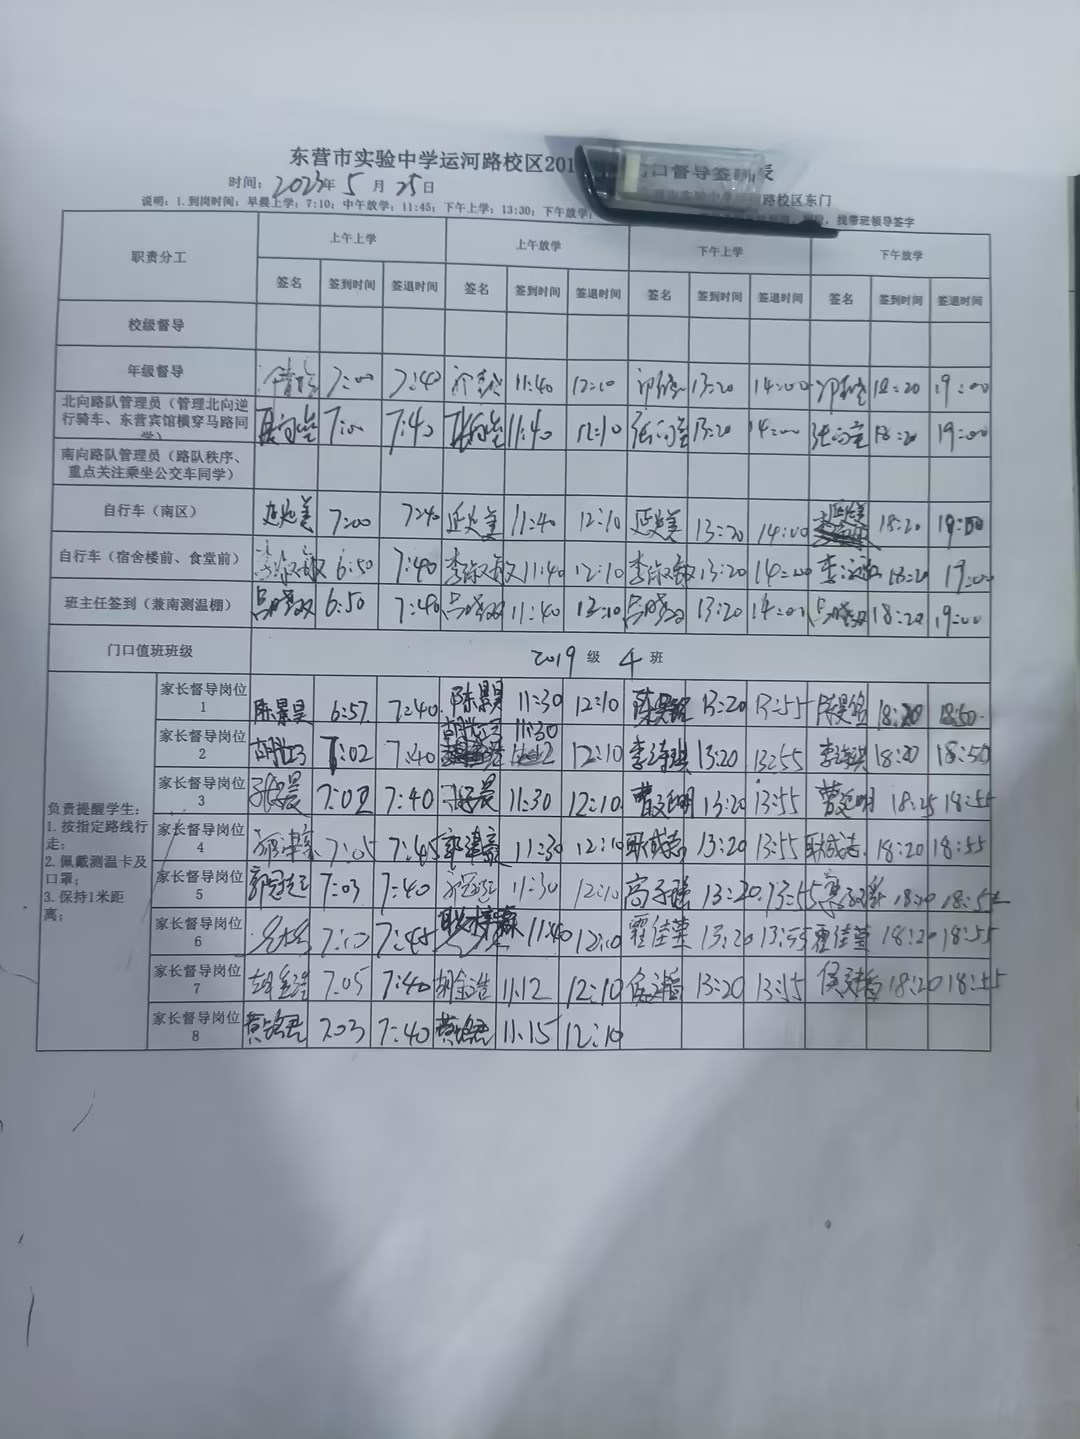 东营市实验中学运河路校区201 口督导签到表
时间：2023年 5 月 25日 路校区东门
说明：1.到岗时间：早晨上学：7:10；中午放学：11:45；下午上学：13:30；下午放学： 找带班领导签字
职责分工 上午上学 上午放学 下午上学 下午放学
签名 签到时间 签退时间 签名 签到时间 签退时间 签名 签到时间 签退时间 签名 签到时间 签退时间
校级督导
年级督导 7:00 7:40 11:40 12:10 13:20 14:00 18:20 19:00
北向路队管理员（管理北向逆
行骑车、东营宾馆横穿马路同
学） 7:00 7:40 11:40 12:10 13:20 14:00 18:20 19:00
南向路队管理员（路队秩序、
重点关注乘坐公交车同学）
自行车（南区） 7:00 7:40 11:40 12:10 13:20 14:00 18:20 19:00
自行车（宿舍楼前、食堂前） 李淑敏 6:50 7:40 李淑敏 11:40 12:10 李淑敏 13:20 14:00 李淑敏 18:20 19:00
班主任签到（兼南测温棚） 吕晓双 6:50 7:40 吕晓双 11:40 12:10 吕晓双 13:20 14:00 吕晓双 18:20 19:00
门口值班班级 2019 级 4 班
负责提醒学生：
1.按指定路线行
走；
2.佩戴测温卡及
口罩；
3.保持1米距
离；
家长督导岗位
1 陈景昊 6:57 7:40 陈景昊 11:30 12:10 13:20 13:55 18:20 18:50
家长督导岗位
2 7:02 7:40 11:30 12:10 李诗琪 13:20 13:55 李诗琪 18:20 18:50
家长督导岗位
3 7:02 7:40 11:30 12:10 曹文明 13:20 13:55 曹文明 18:25 18:55
家长督导岗位
4 郭津豪 7:05 7:45 郭津豪 11:30 12:10 耿成志 13:20 13:55 耿成志 18:20 18:55
家长督导岗位
5 郭冠廷 7:03 7:40 郭冠廷 11:30 12:10 高子强 13:20 13:55 18:20 18:55
家长督导岗位
6 7:10 7:45 11:40 12:10 霍佳莹 13:20 13:55 霍佳莹 18:20 18:55
家长督导岗位
7 胡金浩 7:05 7:40 胡金浩 11:12 12:10 13:20 13:55 18:20 18:55
家长督导岗位
8 黄铭君 7:03 7:40 黄铭君 11:15 12:10